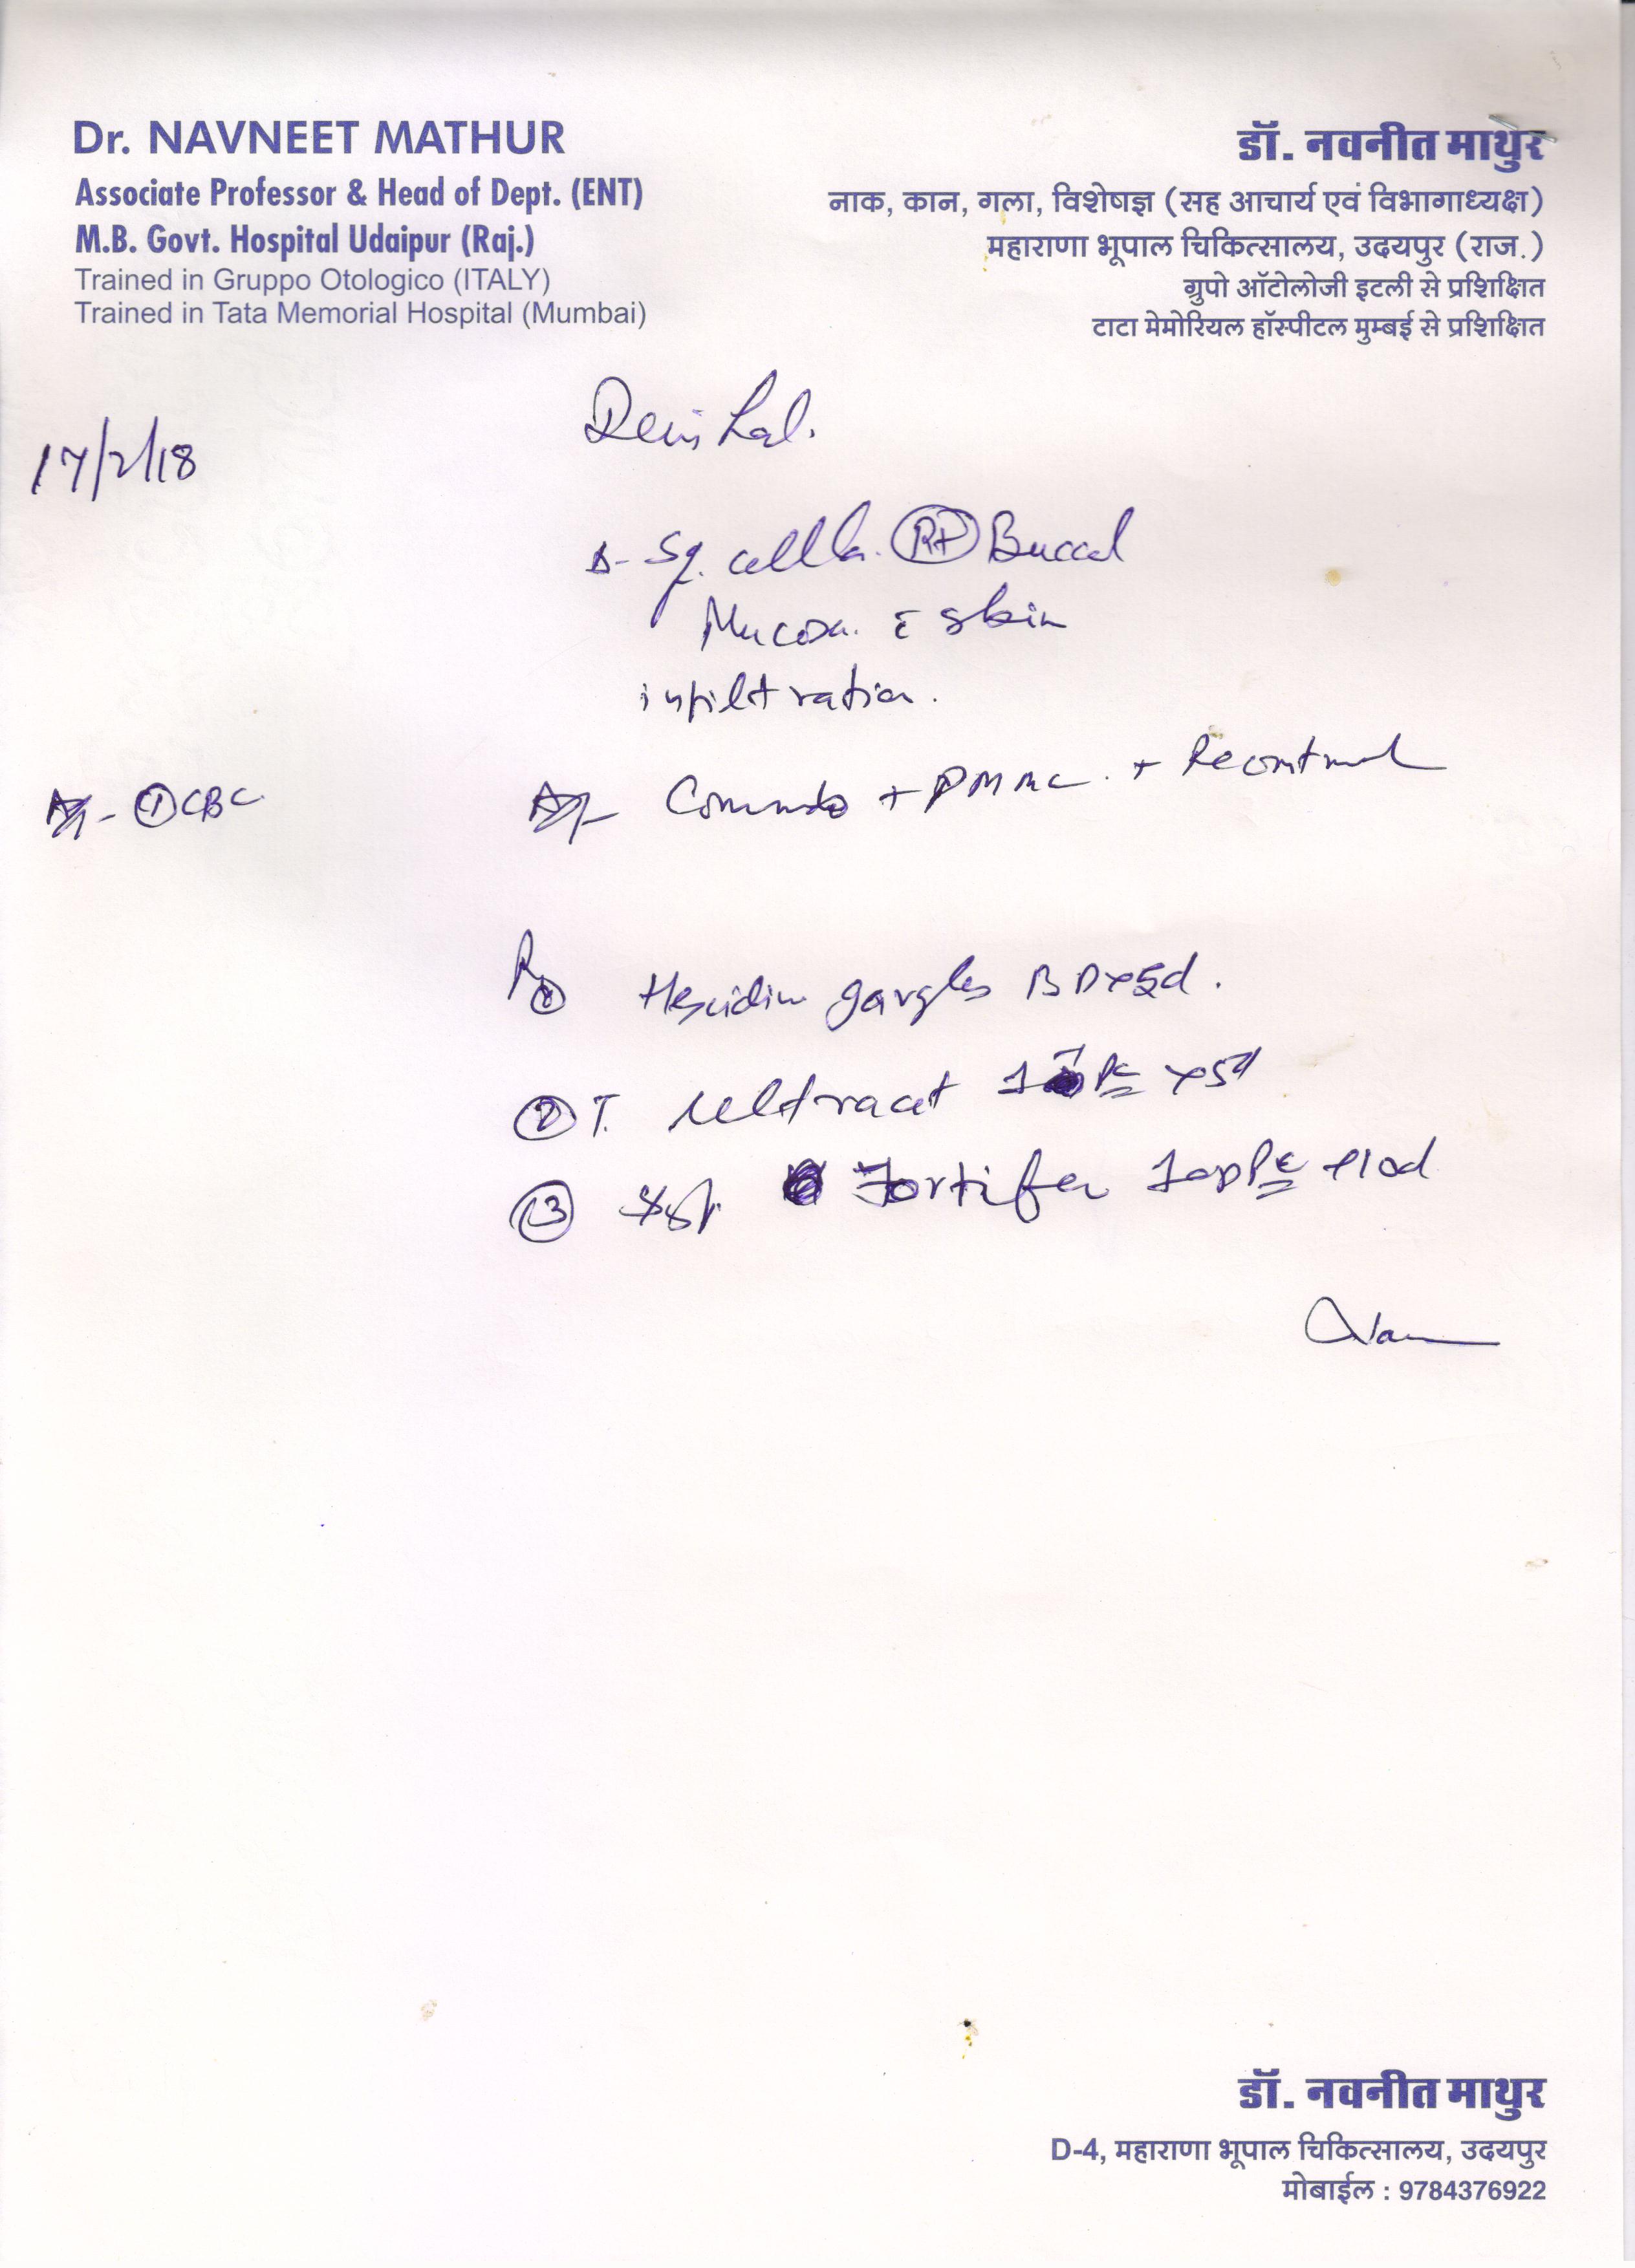 Dr. NAVNEET MATHUR
Associate Professor & Head of Dept. (ENT)
M.B. Govt. Hospital Udaipur (Raj.)
Trained in Gruppo Otologico (ITALY)
Trained in Tata Memorial Hospital (Mumbai)
डॉ. नवनीत माथुर
नाक, कान, गला, विशेषज्ञ (सह आचार्य एवं विभागाध्यक्ष)
महाराणा भूपाल चिकित्सालय, उदयपुर (राज.)
ग्रुपो ऑटोलोजी इटली से प्रशिक्षित
टाटा मेमोरियल हॉस्पीटल मुम्बई से प्रशिक्षित
Devi Lal.
17/2/18
Δ- Sq. cell Ca. Rt Buccal
Mucosa. c̄ skin
infiltration.
Adv- ① CBC
Adv- Commando + PMMC. +
Rx ① gargles BD x 5d.
② T. Ultracet x 5d
③ Syp. x 10d
डॉ. नवनीत माथुर
D-4, महाराणा भूपाल चिकित्सालय, उदयपुर
मोबाईल : 9784376922